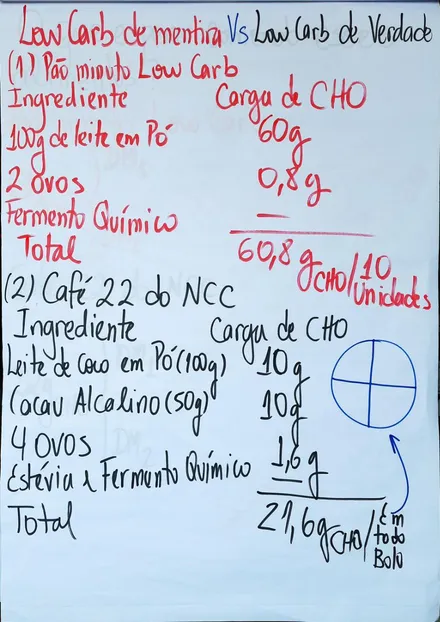 Low Carb de mentira Vs Low Carb de Verdade
(1) Pão minuto Low Carb
Ingrediente Carga de CHO
100g de leite em Pó 60g
2 ovos 0,8g
Fermento Químico —
Total 60,8g CHO/10 Unidades
(2) Café 22 do NCC
Ingrediente Carga de CHO
Leite de Coco em Pó (100g) 10g
Cacau Alcalino (50g) 10g
4 ovos 1,6g
Estévia e Fermento Químico —
Total 21,6g CHO/Em todo Bolo